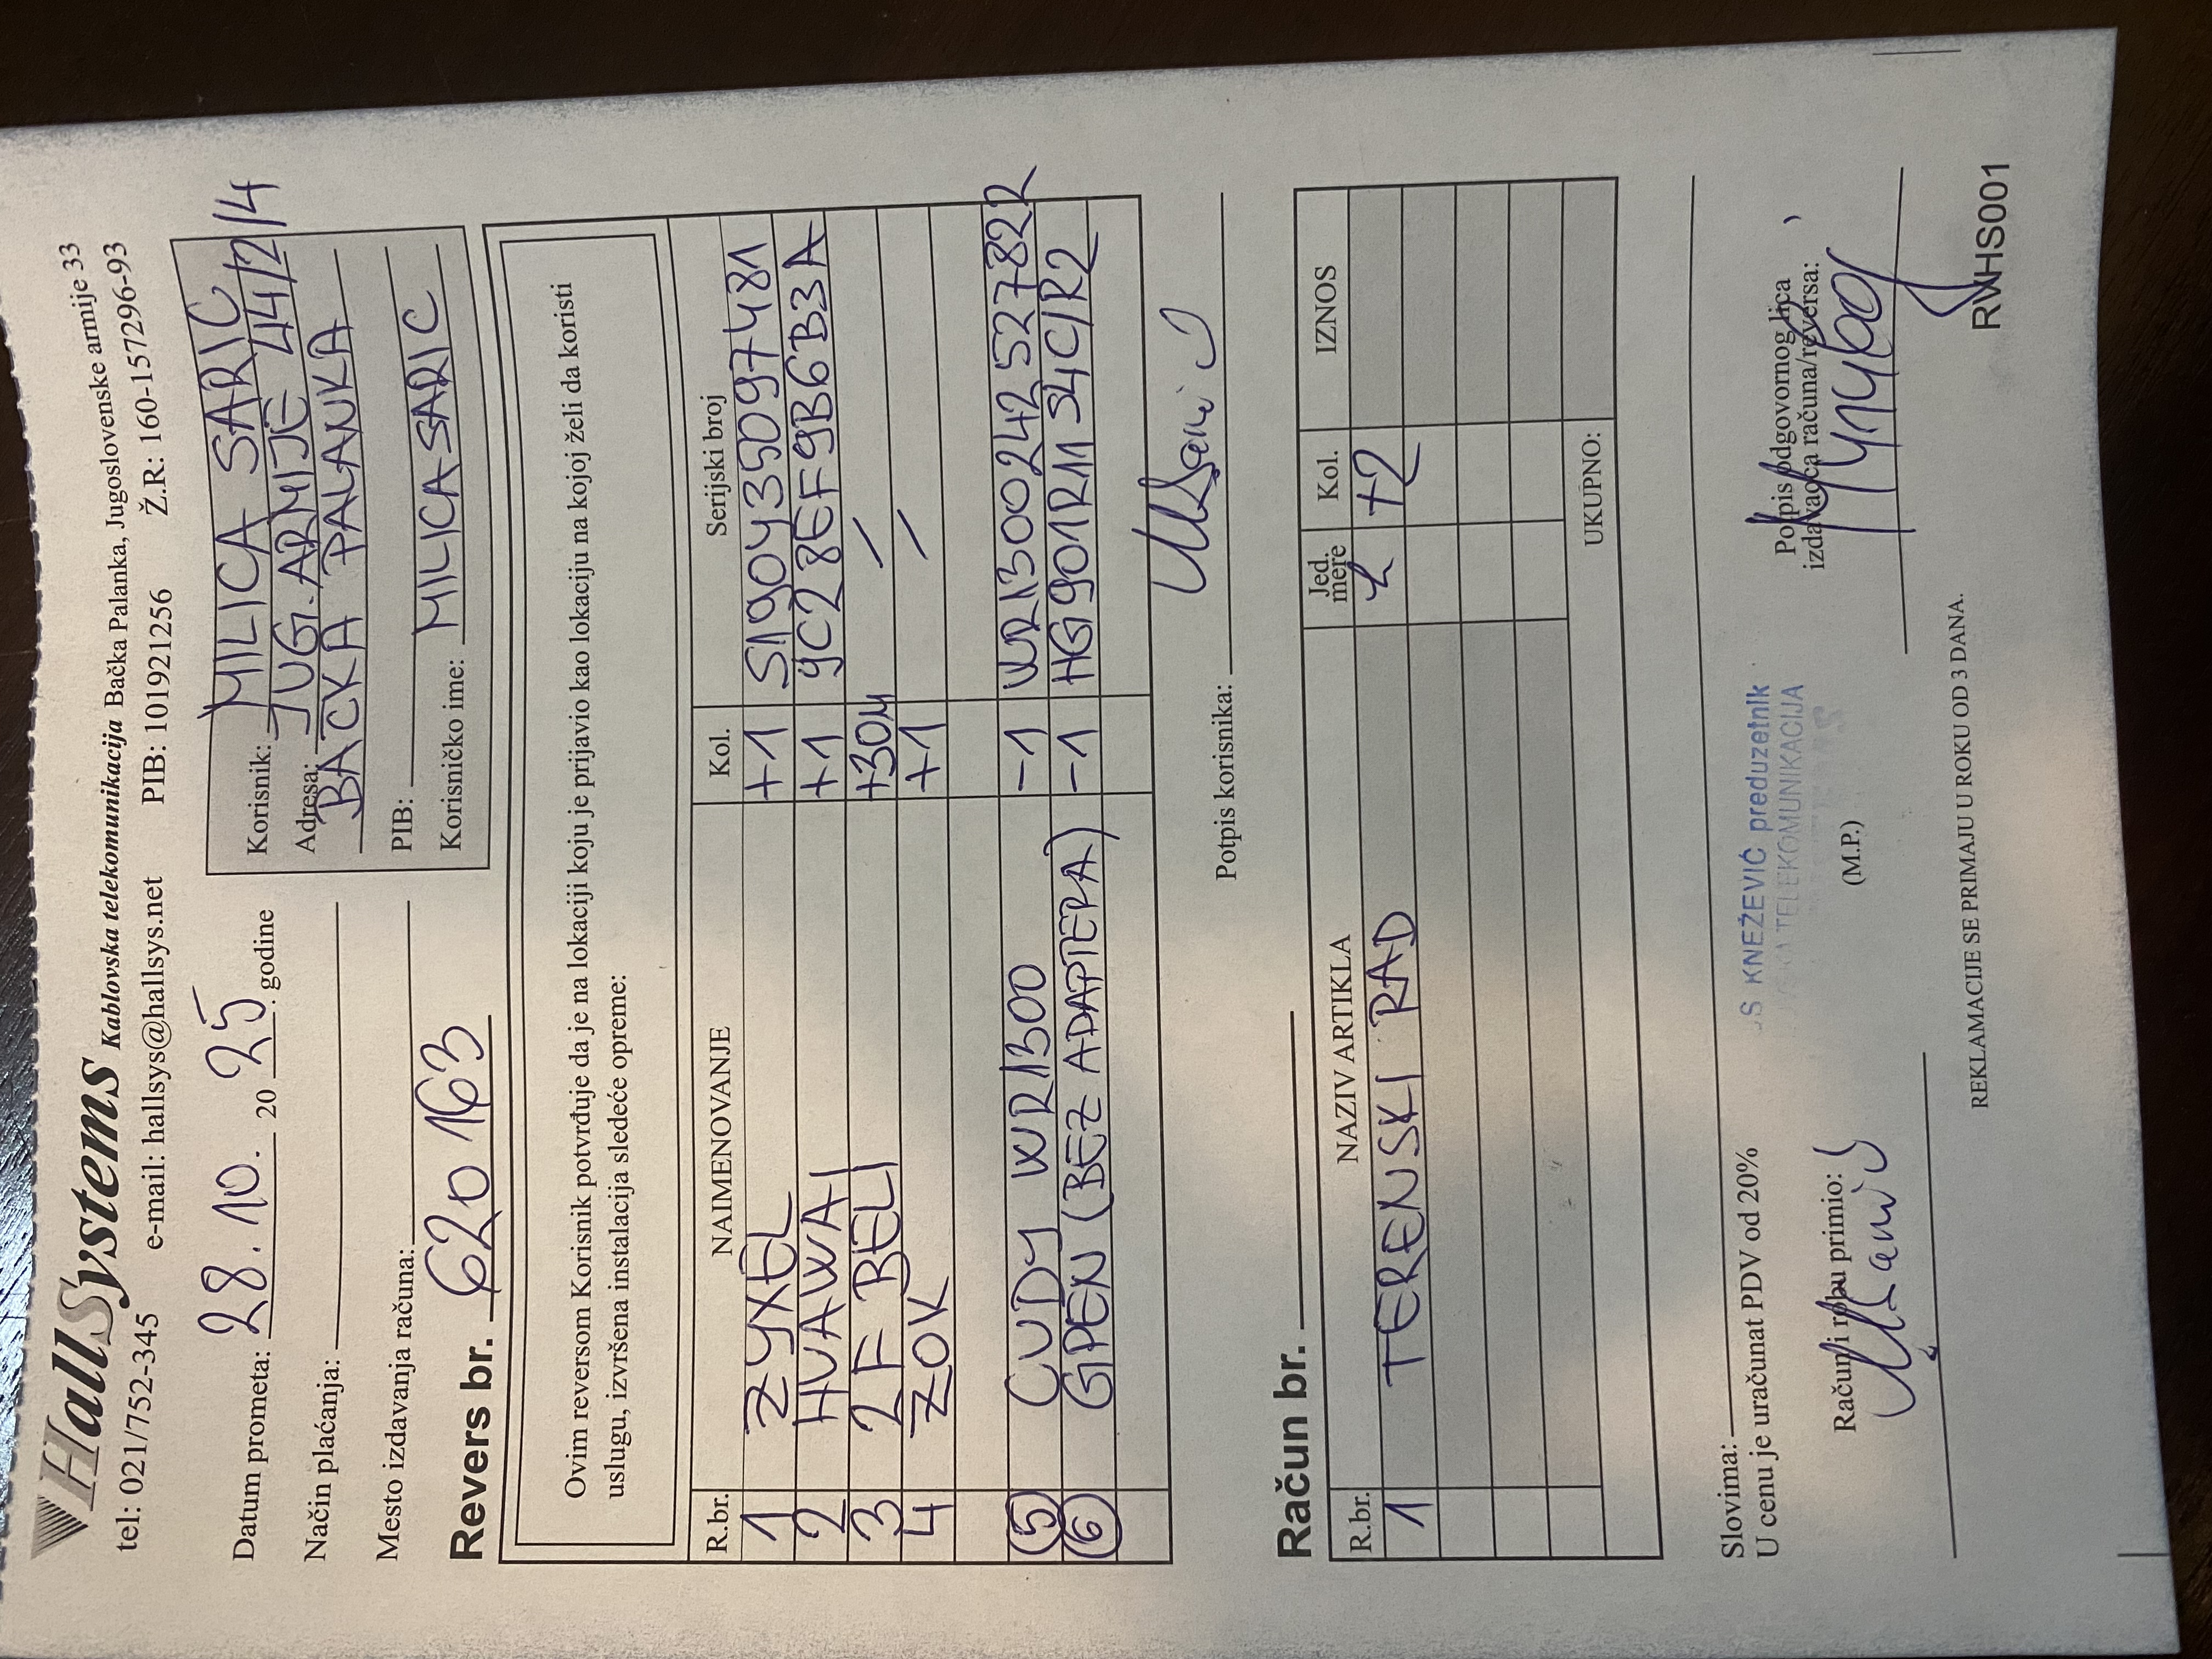 HallSystems Kablovska telekomunikacija Bačka Palanka, Jugoslovenske armije 33
tel: 021/752-345 e-mail: hallsys@hallsys.net PIB: 101921256 Ž.R: 160-157296-93
Datum prometa: 28.10. 2025. godine
Način plaćanja:
Mesto izdavanja računa:
Revers br. 620163
Korisnik: MILICA SARIC
Adresa: JUG. ARMIJE 44/2/4
BACKA PALANKA
PIB:
Korisničko ime: MILICASARIC
Ovim reversom Korisnik potvrđuje da je na lokaciji koju je prijavio kao lokaciju na kojoj želi da koristi
uslugu, izvršena instalacija sledeće opreme:
R.br. NAIMENOVANJE Kol. Serijski broj
1 ZYXEL +1 S190Y35097481
2 HUAWAI +1 9C28EF9B6B3A
3 2F BELI +30M /
4 ZOK +1 /
5 CUDY WR1300 -1 WR1300242527822
6 GPEN (BEZ ADAPTERA) -1 HG901R1134C/R2
Potpis korisnika:
Račun br.
R.br. NAZIV ARTIKLA Jed. mere Kol. IZNOS
1 TERENSKI RAD h +2
UKUPNO:
Slovima:
U cenu je uračunat PDV od 20%
JS KNEŽEVIĆ preduzetnik
TELEKOMUNIKACIJA
(M.P.)
Račun i robu primio:
Potpis odgovornog lica
izdavaoca računa/reversa:
REKLAMACIJE SE PRIMAJU U ROKU OD 3 DANA.
RWHS001